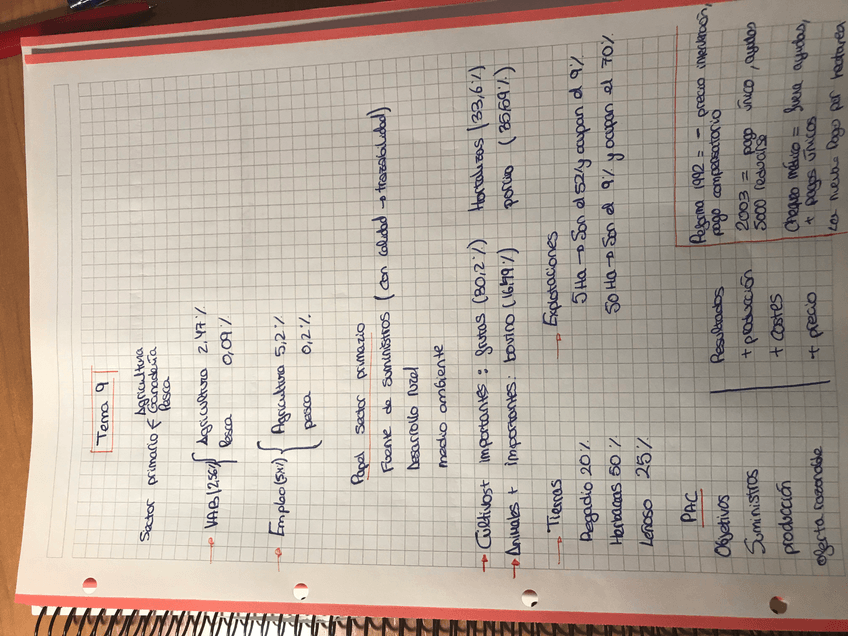 Tema 9
Sector primario Agricultura
Ganadería
Pesca
→ VAB (2,56%) Agricultura 2,47%
Pesca 0,09%
→ Empleo Agricultura 5,2%
pesca 0,2%
Papel Sector primario
Fuente de suministros (con calidad → trazabilidad)
Desarrollo rural
medio ambiente
→ Cultivos + importantes: frutas (30,2%) Hortalizas (33,6%)
→ Animales + importantes: bovino (16,79%) porcino (35,69%)
→ Tierras
Regadio 20%
Herbaceas 50%
Leñoso 25%
→ Explotaciones
5 Ha → Son el 52% y ocupan el 9%
50 Ha → Son el 9% y ocupan el 70%
PAC
Objetivos
Suministros
producción
oferta razonable
Resultados
+ producción
+ costes
+ precio
Reforma 1992 = - precio intervención,
pago compensatorio
2003 = pago único, ayudas
5000
Chequeo médico = nueva ayudas,
+ pagos únicos
La nueva = Pago por hectarea